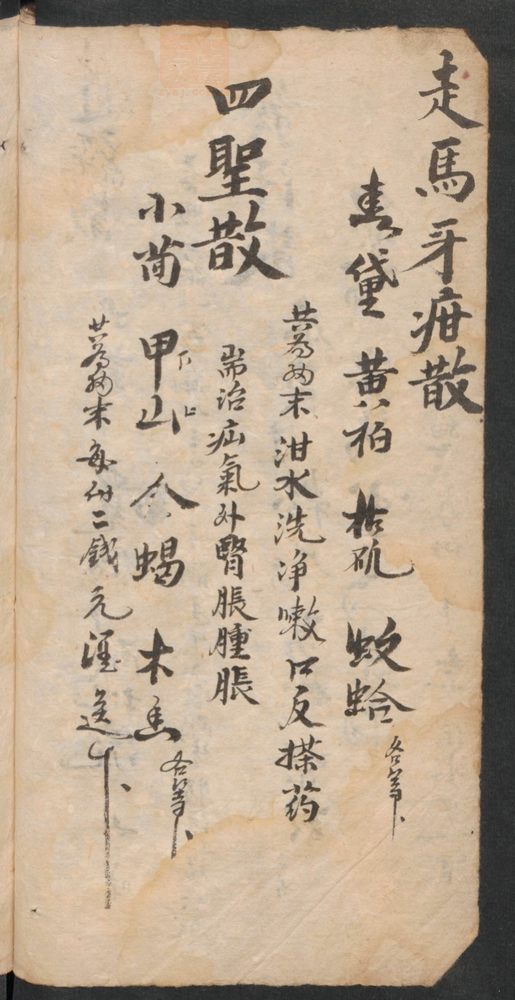 走馬牙疳散
青黛 黄柏 枯矾 蚊蛤 各等卜
共為細末泔水洗净嗽口反搽药
四聖散
耑治疝氣外腎脹腫脹
小茴 甲山 全蝎 木香 各等卜
共為細末每付二錢元酒送下